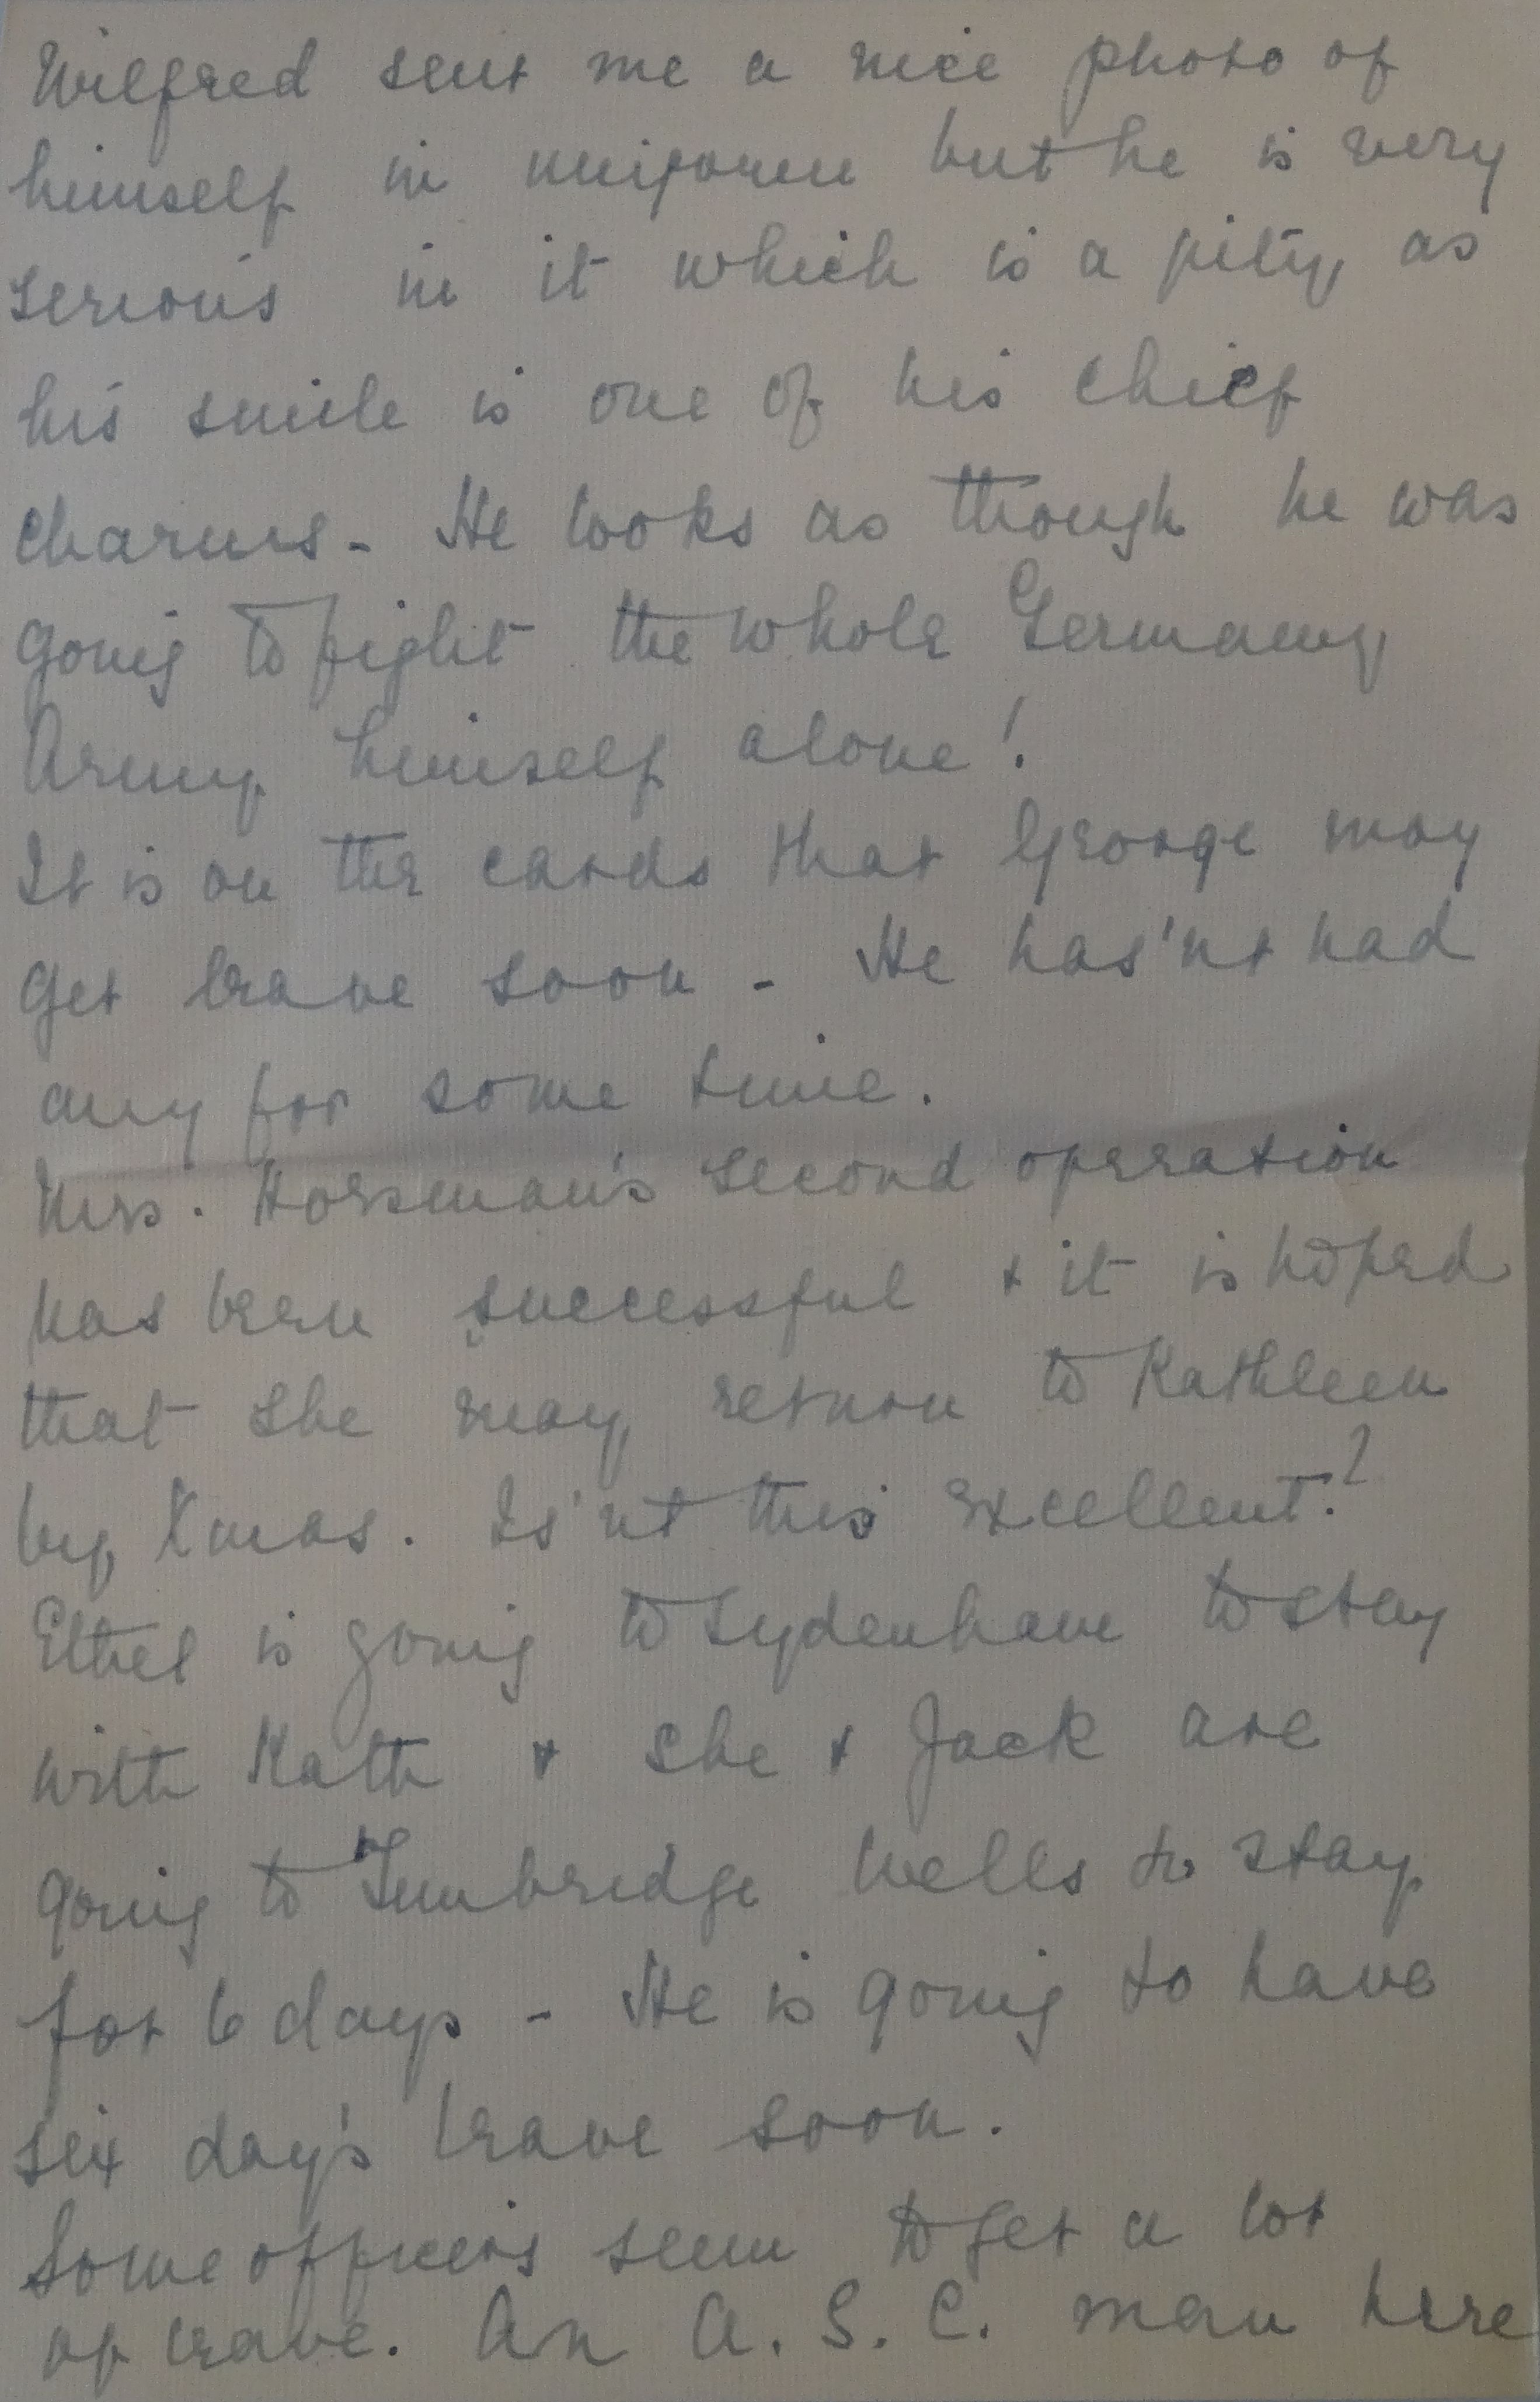 Wilfred sent me a nice photo of
himself in uniform but he is very
serious in it which is a pity as
his smile is one of his chief
charms - He looks as though he was
going to fight the whole Germany
Army himself alone!
It is on the cards that George may
get leave soon - He has'nt had
any for some time.
Mrs. Horsman's second operation
has been successful & it is hoped
that she may return to Kathleen
by Xmas. Is'nt this excellent?
Ethel is going to Sydenham to stay
with Kath & she & Jack are
going to Tunbridge Wells to stay
for 6 days - He is going to have
six day's leave soon.
Some officers seem to get a lot
of leave. An A. S. C. man here